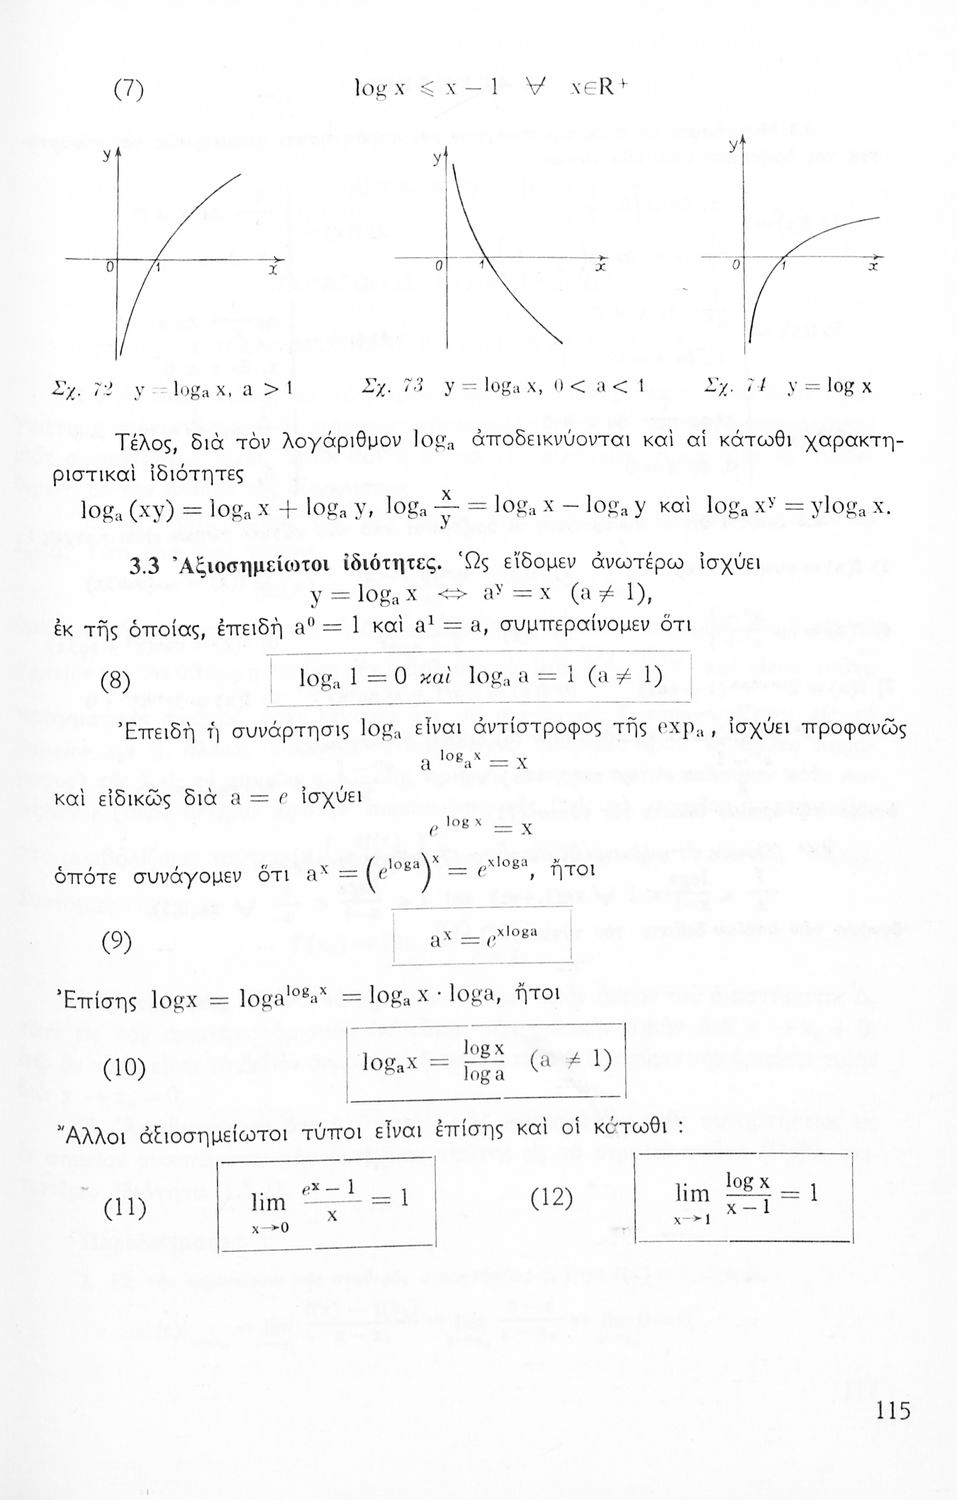 (7) log x ⩽ x − 1 ∀ x∈R⁺
y y y
0 1 x 0 1 x 0 1 x
Σχ. 72 y = logₐ x, a > 1 Σχ. 73 y = logₐ x, 0 < a < 1 Σχ. 74 y = log x
Τέλος, διὰ τὸν λογάριθμον logₐ ἀποδεικνύονται καὶ αἱ κάτωθι χαρακτη-
ριστικαὶ ἰδιότητες
logₐ (xy) = logₐ x + logₐ y, logₐ x/y = logₐ x − logₐ y καὶ logₐ xʸ = ylogₐ x.
3.3 Ἀξιοσημείωτοι ἰδιότητες. Ὡς εἴδομεν ἀνωτέρω ἰσχύει
y = logₐ x ⇔ aʸ = x (a ≠ 1),
ἐκ τῆς ὁποίας, ἐπειδὴ a⁰ = 1 καὶ a¹ = a, συμπεραίνομεν ὅτι
(8) logₐ 1 = 0 καὶ logₐ a = 1 (a ≠ 1)
Ἐπειδὴ ἡ συνάρτησις logₐ εἶναι ἀντίστροφος τῆς expₐ , ἰσχύει προφανῶς
a^(logₐx) = x
καὶ εἰδικῶς διὰ a = e ἰσχύει
e^(log x) = x
ὁπότε συνάγομεν ὅτι aˣ = (e^(loga))ˣ = e^(xloga), ἤτοι
(9) aˣ = e^(xloga)
Ἐπίσης logx = loga^(logₐx) = logₐ x · loga, ἤτοι
(10) logₐx = logx/loga (a ≠ 1)
Ἄλλοι ἀξιοσημείωτοι τύποι εἶναι ἐπίσης καὶ οἱ κάτωθι :
(11) lim x→0 (eˣ − 1)/x = 1 (12) lim x→1 log x/(x − 1) = 1
115